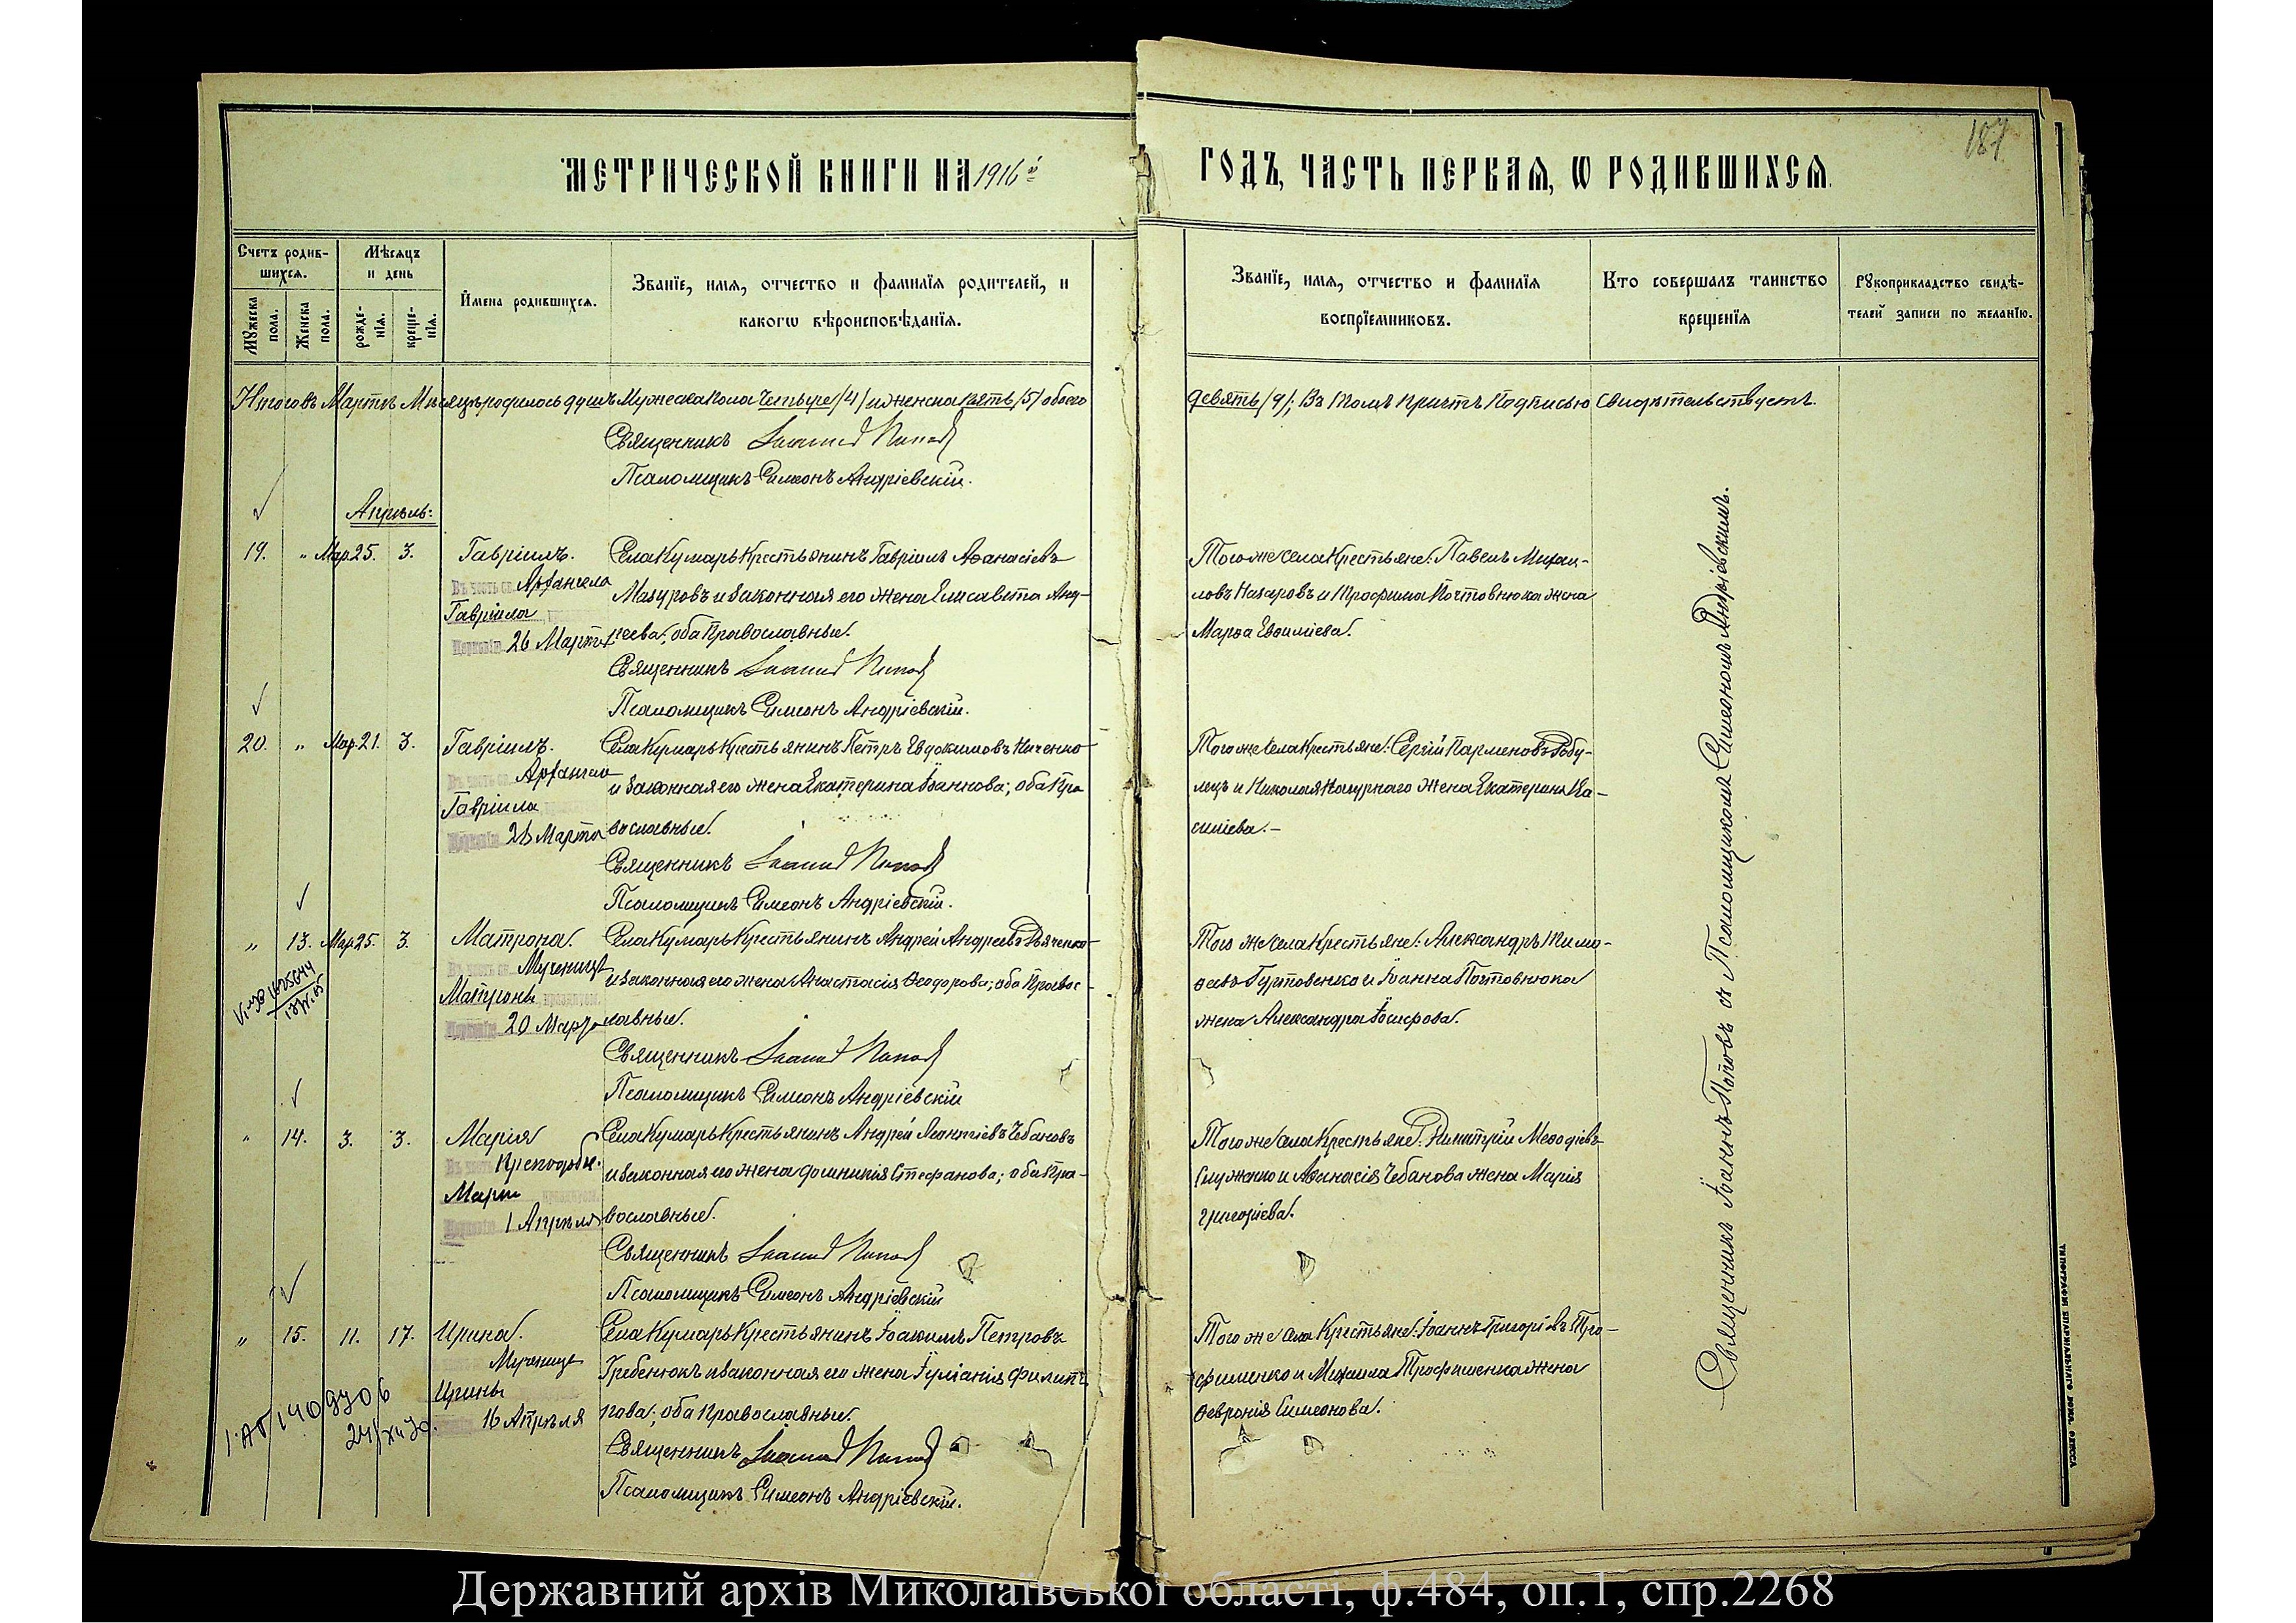 187
МЕТРИЧЕСКОЙ КНИГИ НА 1916й ГОДЪ, ЧАСТЬ ПЕРВАЯ, Ѡ РОДИВШИХСЯ.
Счетъ родив-
шихся.
Мѣсяцъ
и день
Мужеска
пола.
Женска
пола.
рожде-
нїя.
креще-
нїя.
Имена родившихся.
Званїе, имя, отчество и фамилїя родителей, и
какогѡ вѣроисповѣданїя.
Званїе, имя, отчество и фамилїя
воспрїемниковъ.
Кто совершалъ таинство
крещенїя
Рукоприкладство свидѣ-
телей записи по желанїю.
Итого въ Мартѣ Мѣсяцѣ родилось душъ Мужеска пола Четыре /4/ и женска пять /5/ обоего
девять /9/; Въ томъ Причтъ Подписью Свидѣтельствуетъ.
Священникъ Іоаннъ Поповъ
Псаломщикъ Симеонъ Андріевскій.
Апрѣль:
19. " Мар. 25. 3. Гавріилъ.
Въ честь св. Архангела
Гавріила
26 Марта
Села Кумарь Крестьянинъ Гавріилъ Аѳанасіевъ
Мазуровъ и законная его жена Елисавета Анд-
реева; оба Православные.
Священникъ Іоаннъ Поповъ
Псаломщикъ Симеонъ Андріевскій.
Того же села Крестьяне: Павелъ Михаи-
ловъ Назаровъ и Трофима Почтовнюка жена
Марѳа Евѳиміева.
20. " Мар. 21. 3. Гавріилъ.
Въ честь св. Архангела
Гавріила
26 Марта
Села Кумарь Крестьянинъ Петръ Евдокимовъ Ниченко
и законная его жена Екатерина Іоаннова; оба Пра
вославные.
Священникъ Іоаннъ Поповъ
Псаломщикъ Симеонъ Андріевскій.
Того же села Крестьяне: Сергій Парменовъ
и Николая жена Екатерина Ва-
силіева.-
" 13. Мар. 25. 3. Матрона.
Въ честь св. Мученицы
Матроны праздную.
20 Марта
Села Кумарь Крестьянинъ Андрей Андреевъ Дяченко
и законная его жена Анастасія Ѳеодорова; оба Правос-
лавные.
Священникъ Іоаннъ Поповъ
Псаломщикъ Симеонъ Андріевскій
Того же села Крестьяне: Александръ Тимо-
ѳеевъ Гуртовенко и Іоанна Почтовнюка
жена Александра Іосифова.
" 14. 3. 3. Марія
Въ честь Преподобн.
Маріи
1 Апрѣля
Села Кумарь Крестьянинъ Андрей Леонтіевъ Чебановъ
и законная его жена Домникія Стефанова; оба Пра-
вославные.
Священникъ Іоаннъ Поповъ
Псаломщикъ Симеонъ Андріевскій
Того же села Крестьяне: Димитрій Меѳодіевъ
Служенко и Аѳанасія Чебанова жена Марія
Григоріева.
" 15. 11. 17. Ирина.
Мученицы
Ирины
16 Апрѣля
Села Кумарь Крестьянинъ Іоакимъ Петровъ
Гребенюкъ и законная его жена Іуліанія Филип-
пова; оба Православные.
Священникъ Іоаннъ Поповъ
Псаломщикъ Симеонъ Андріевскій.
Того же села Крестьяне: Іоаннъ Григоріевъ Тро-
фименко и Михаила Трофименка жена
Ѳевронія Симеонова.
Священникъ Іоаннъ Поповъ съ Псаломщикомъ Симеономъ Андріевскимъ.
ТИПОГРАФІЯ ЕПАРХІАЛЬНАГО ДОМА, ОДЕССА
Державний архів Миколаївської області, ф.484, оп.1, спр.2268